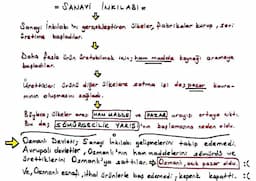 = SANAYİ İNKILABI =
Sanayi İnkılabı'nı gerçekleştiren ülkeler, fabrikalar kurup, seri
üretime başladılar.
Daha fazla ürün üretebilmek için; ham madde kaynağı aramaya
başladılar.
Ürettikleri ürünü diğer ülkelere satma işi de; pazar kavra-
mının oluşmasını sağladı.
Böylece; ülkeler arası HAM MADDE ve PAZAR arayışı ortaya çıktı.
da; SÖMÜRGECİLİK YARIŞI'nın başlamasına neden oldu.
Osmanlı Devleti; Sanayi İnkılabı gelişmelerini takip edemedi.
Avrupalı devletler, Osmanlı'nın ham maddelerini sömürdü ve
ürettiklerini Osmanlı'ya sattılar. Osmanlı, açık pazar oldu :(
Ve, Osmanlı esnafı, ithal ürünlerle baş edemedi; kepenk kapattı. :(